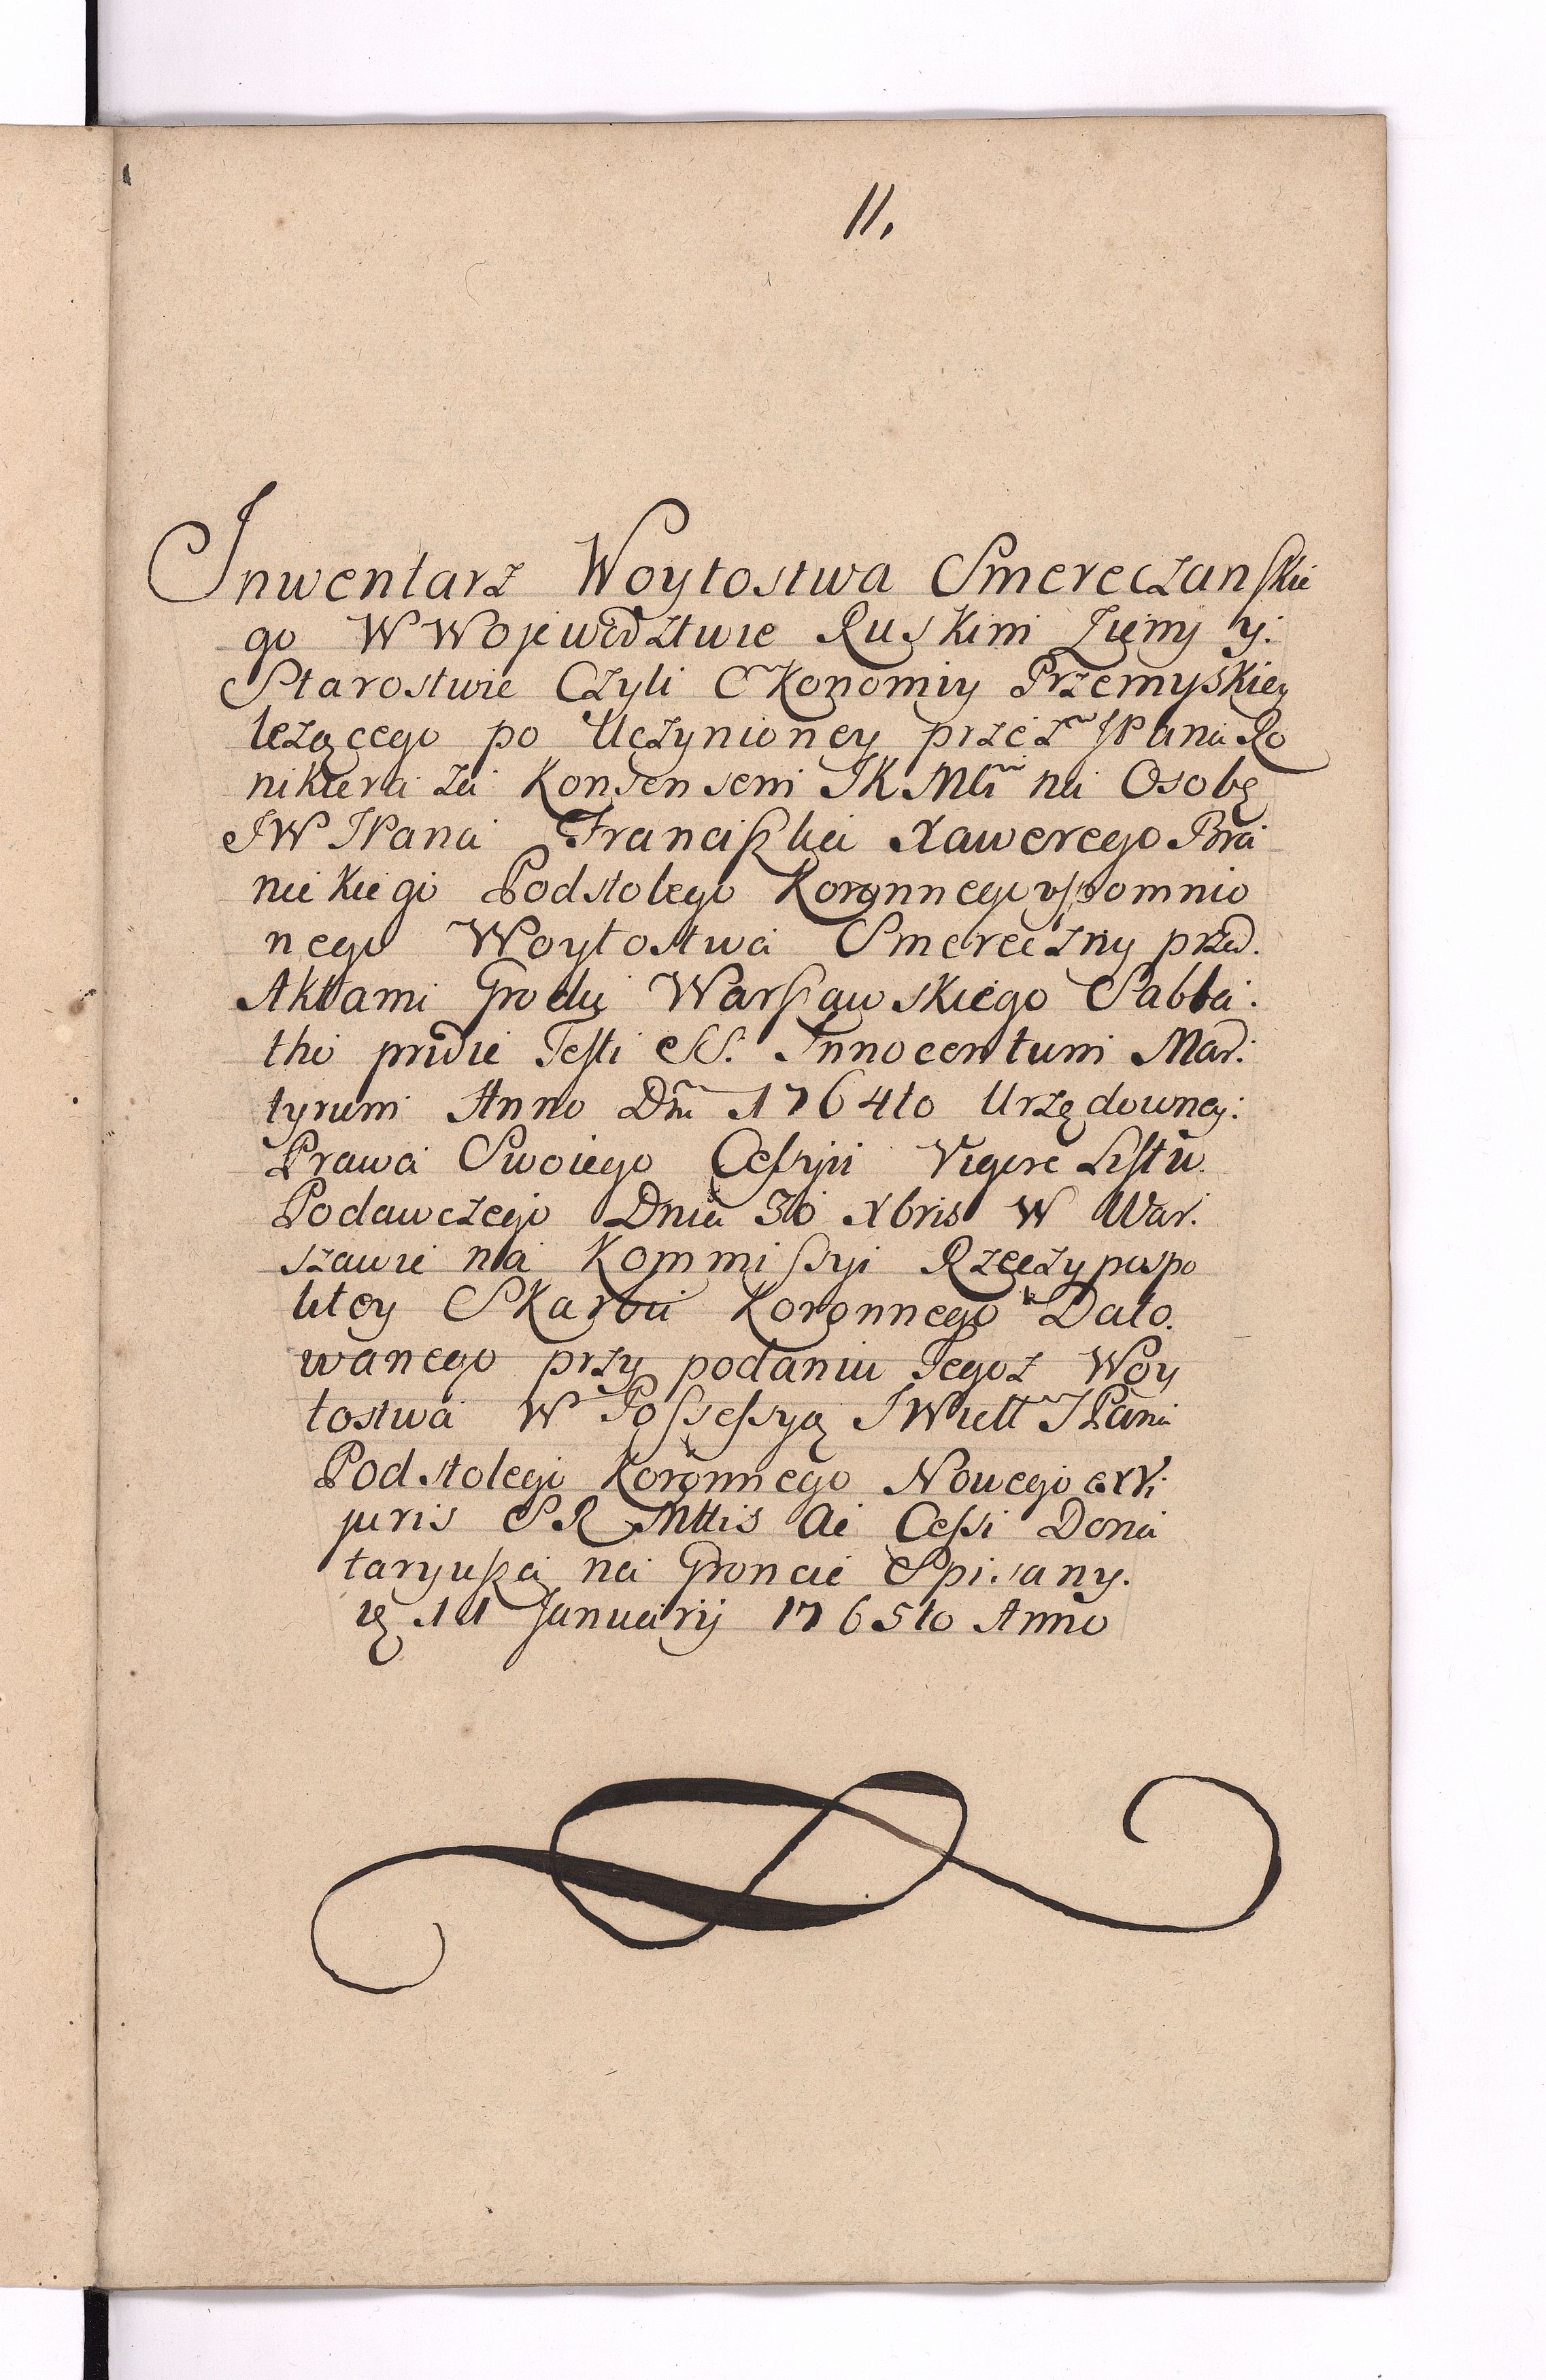 11.
Inwentarz Woytostwa Smereczanskie
go W Wojewodztwie Ruskim Ziemy y:
Starostwie Czyli Ekonomiy Przemyskiey
leżącego po Uczynioney przez JPana Ro
nikiera za Konsensem JKMci na Osobę
JW JPana Franciszka Xawerego Bra
nickiego Podstolego Koronnego wspomnio
nego Woytostwa Smereczny przed.
Aktami Grodu Warszawskiego Sabba:
tho pridie Festi SS. Innocentum Mar:
tyrum Anno Dni 1764to Urzędowney:
Prawa Swoiego Cessyii Vigore Listu.
Podawczego Dnia 30 Xbris W War.
szawie na Kommissyi Rzeczypospo
litey Skarbu Koronnego Dato.
wanego przy podaniu Tegoz Woy
tostwa W Possessyą JWielt JPana
Podstolego Koronnego Nowego ex Vi
juris SRMttis ac Cessi Dona
taryusza na Groncie Spisany.
ię 11 Januarij 1765to Anno